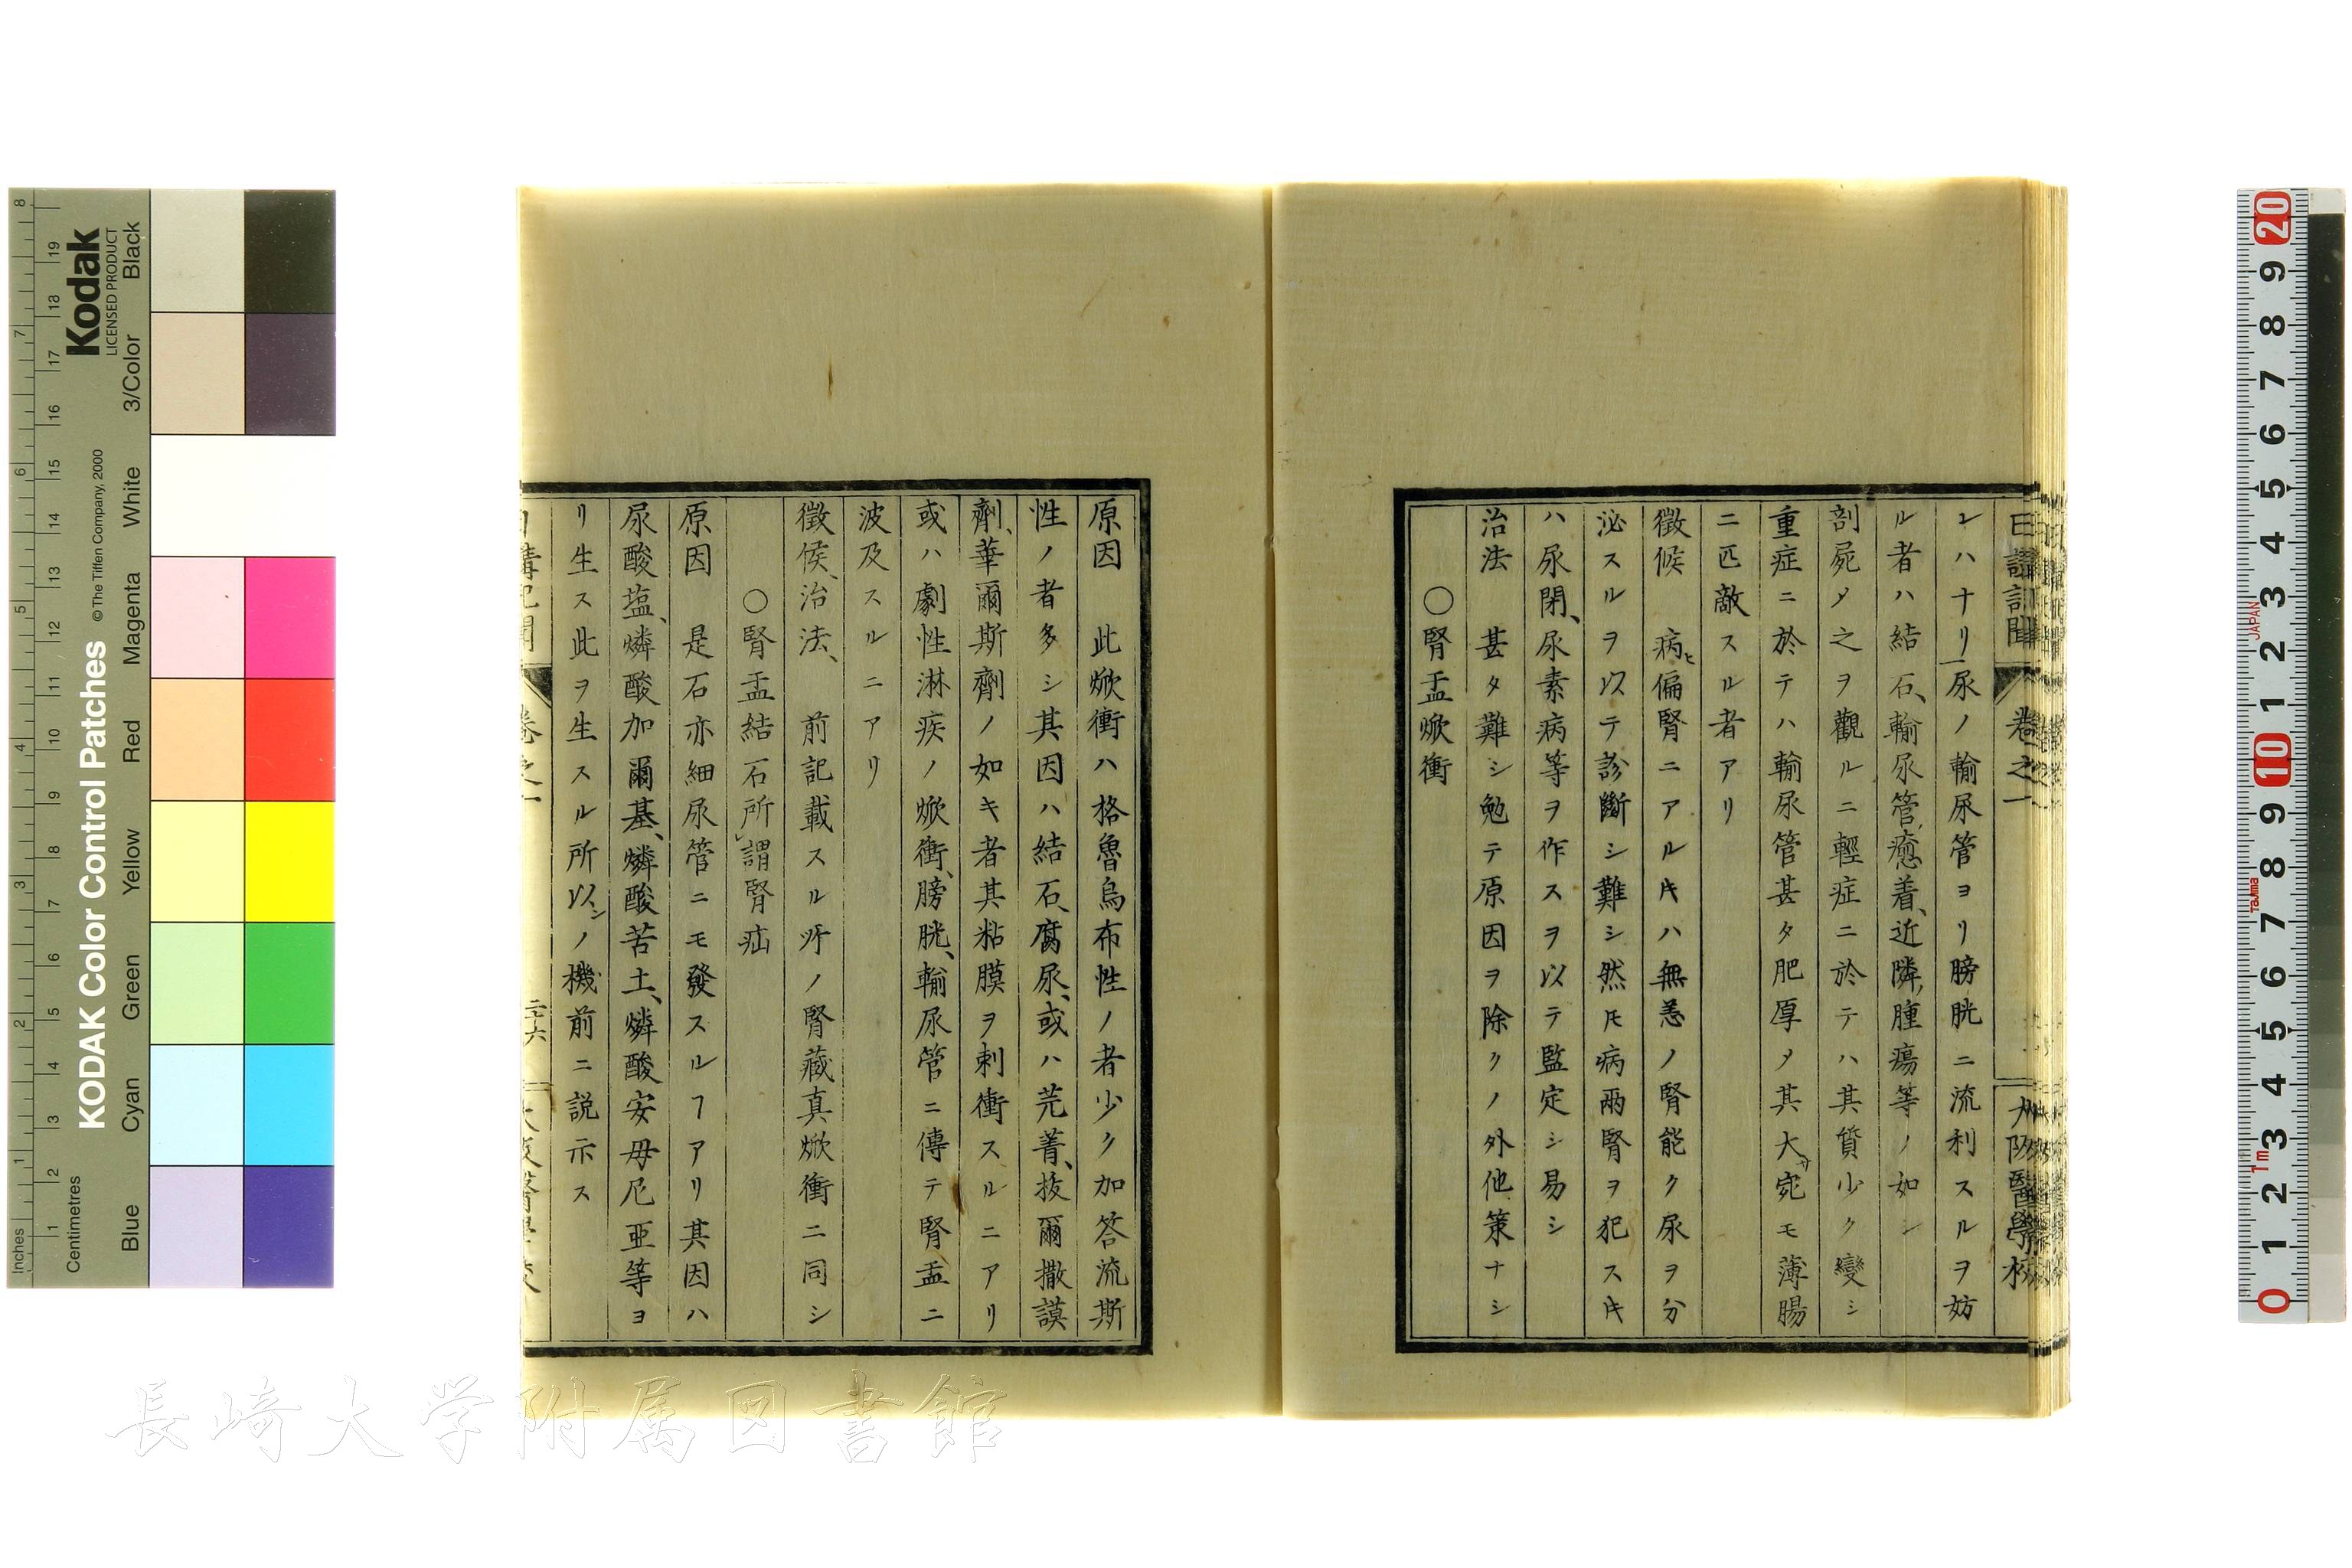 日講記聞 卷之一 大阪醫學校
レハナリ尿ノ輸尿管ヨリ膀胱ニ流利スルヲ妨
ル者ハ結石、輸尿管癒着、近隣腫瘍等ノ如シ
剖屍〆之ヲ觀ルニ輕症ニ於テハ其質少ク變シ
重症ニ於テハ輸尿管甚タ肥厚〆其大サ宛モ薄腸
ニ匹敵スル者アリ
徴候 病ヒ偏腎ニアルキハ無恙ノ腎能ク尿ヲ分
泌スルヲ以テ診斷シ難シ然𪜈病兩腎ヲ犯スキ
ハ尿閉、尿素病等ヲ作スヲ以テ監定シ易シ
治法 甚タ難シ勉テ原因ヲ除クノ外他策ナシ
○腎盂焮衝
原因 此焮衝ハ格魯烏布性ノ者少ク加答流斯
性ノ者多シ其因ハ結石、腐尿、或ハ芫菁、拔爾撒謨
劑、華爾斯劑ノ如キ者其粘膜ヲ刺衝スルニアリ
或ハ劇性淋疾ノ焮衝、膀胱、輸尿管ニ傳テ腎盂ニ
波及スルニアリ
徴候、治法、 前記載スル所ノ腎藏真焮衝ニ同シ
○腎盂結石所謂腎疝
原因 是石亦細尿管ニモ發スルヿアリ其因ハ
尿酸塩、燐酸加爾基、燐酸苦土、燐酸安母尼亜等ヨ
リ生ス此ヲ生スル所以ンノ機前ニ説示ス
日講記聞 卷之一 二十六 大阪醫學校
長崎大学附属図書館
KODAK Color Control Patches © The Tiffen Company, 2000
Kodak
LICENSED PRODUCT
Inches
Centimetres
Blue Cyan Green Yellow Red Magenta White 3/Color Black
JAPAN
Tajima
1m